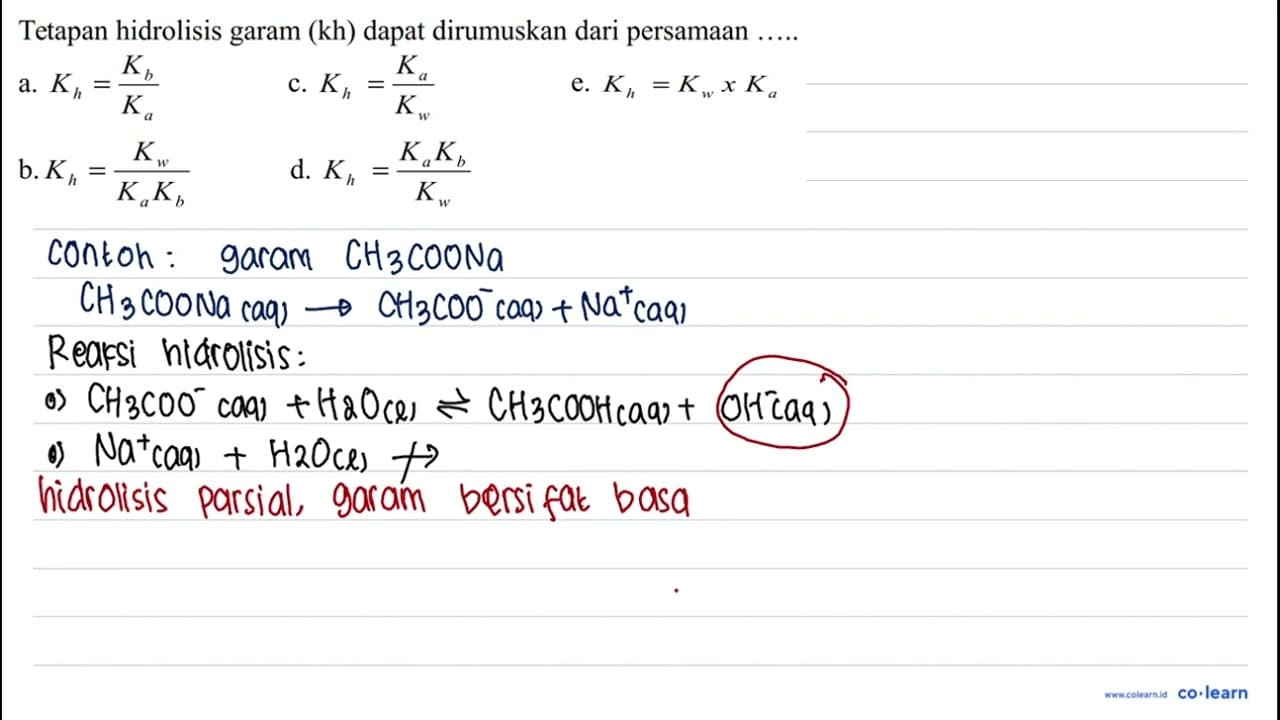 Tetapan hidrolisis garam (kh) dapat dirumuskan dari persamaan .....
a. K_h = K_b / K_a c. K_h = K_a / K_w e. K_h = K_w x K_a
b. K_h = K_w / K_a K_b d. K_h = K_a K_b / K_w
Contoh : garam CH3COONa
CH3COONa (aq) → CH3COO⁻ (aq) + Na⁺ (aq)
Reaksi hidrolisis :
•) CH3COO⁻ (aq) + H2O(l) ⇌ CH3COOH(aq) + OH⁻(aq)
•) Na⁺(aq) + H2O(l) ↛
hidrolisis parsial, garam bersifat basa
www.colearn.id co·learn